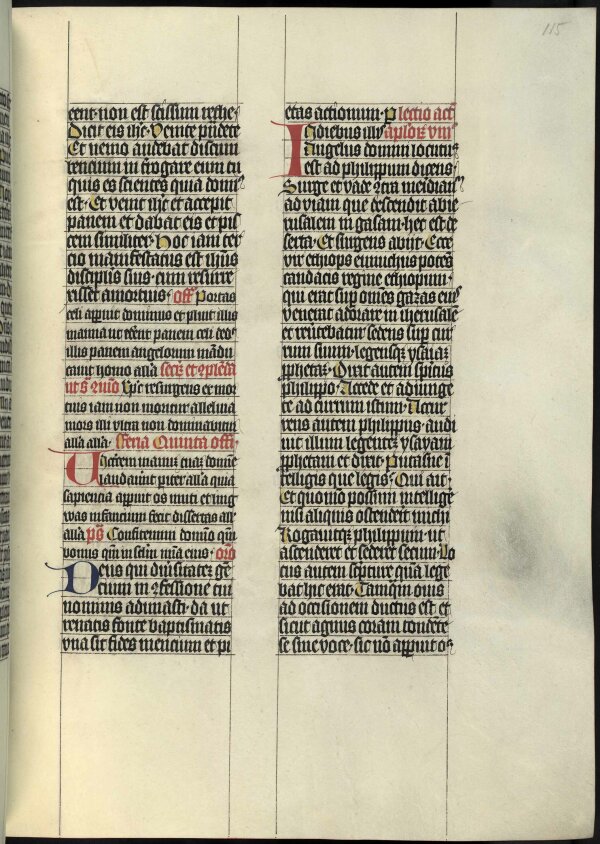 115
cent non est scissum rethe
Dicit eis ihc Venite prādete
Et nemo audebat discum
bencium īt̄rogare eum tu
quis es scientes quia domīs
est Et venit ihc et accepit
panem et dabat eis et pis
cem similiter Hoc iam ter
cio manifestatus est ihūs
discipulis suis cum resurre
xisset a mortuis off Portas
celi apparuit dominus et pluit illis
manna ut ederent panem celi ded
illis panem angelorum mādu
cauit homo alla
Xp̄c resurgens ex mor
tuis iam non moritur alleluia
mors illi ultra non dominabitur
alla alla Feria Quinta offī
Victricem manum tuam domīe
laudauerunt pariter alla quia
sapientia aperuit os mutū et ling
was infancium fecit dissertas all
alla ps̄ Confitemini domino qm̄
bonus qm̄ in sclm̄ mīa eius oro
Deus qui diuersitatem gē
cium in ꝯfessione tui
nominis adunasti da ut
renatis fonte baptismatis
vna sit fides mencium et pi
etas actionum P lectio actꝰ
In diebus ill' aplor̄ viii
Angelus domini locutus
est ad philippum dicens
Surge et vade ꝯtra meridianū
ad viam que descendit ab ie
rusalem in gasam hec est de
serta Et surgens abijt Ecce
vir ethiops eunuchus potēs
candacis regine ethiopum
qui erat sup omēs gazas eiꝰ
venerat adorare in iherusalē
et reuertebatur sedens sup cur
rum suum legensqꝫ ysaiaꝫ
ꝓphetaꝫ Dixit autem spiritus
philippo Accede et adiunge
te ad currum istum Accur
rens autem philippus audi
uit illum legentem ysayam
ꝓphetam et dixit Putasne ī
telligis que legis Qui ait
Et quomō possum intellige
re si aliquis ostenderit michi
Rogauitqꝫ philippum ut
ascenderet et sederet secum Lo
cus autem scpture quā lege
bat hic erat Tamqm ouis
ad occisionem ductus est et
sicut agnus coram tondēte
se sine voce sic nō apperuit os